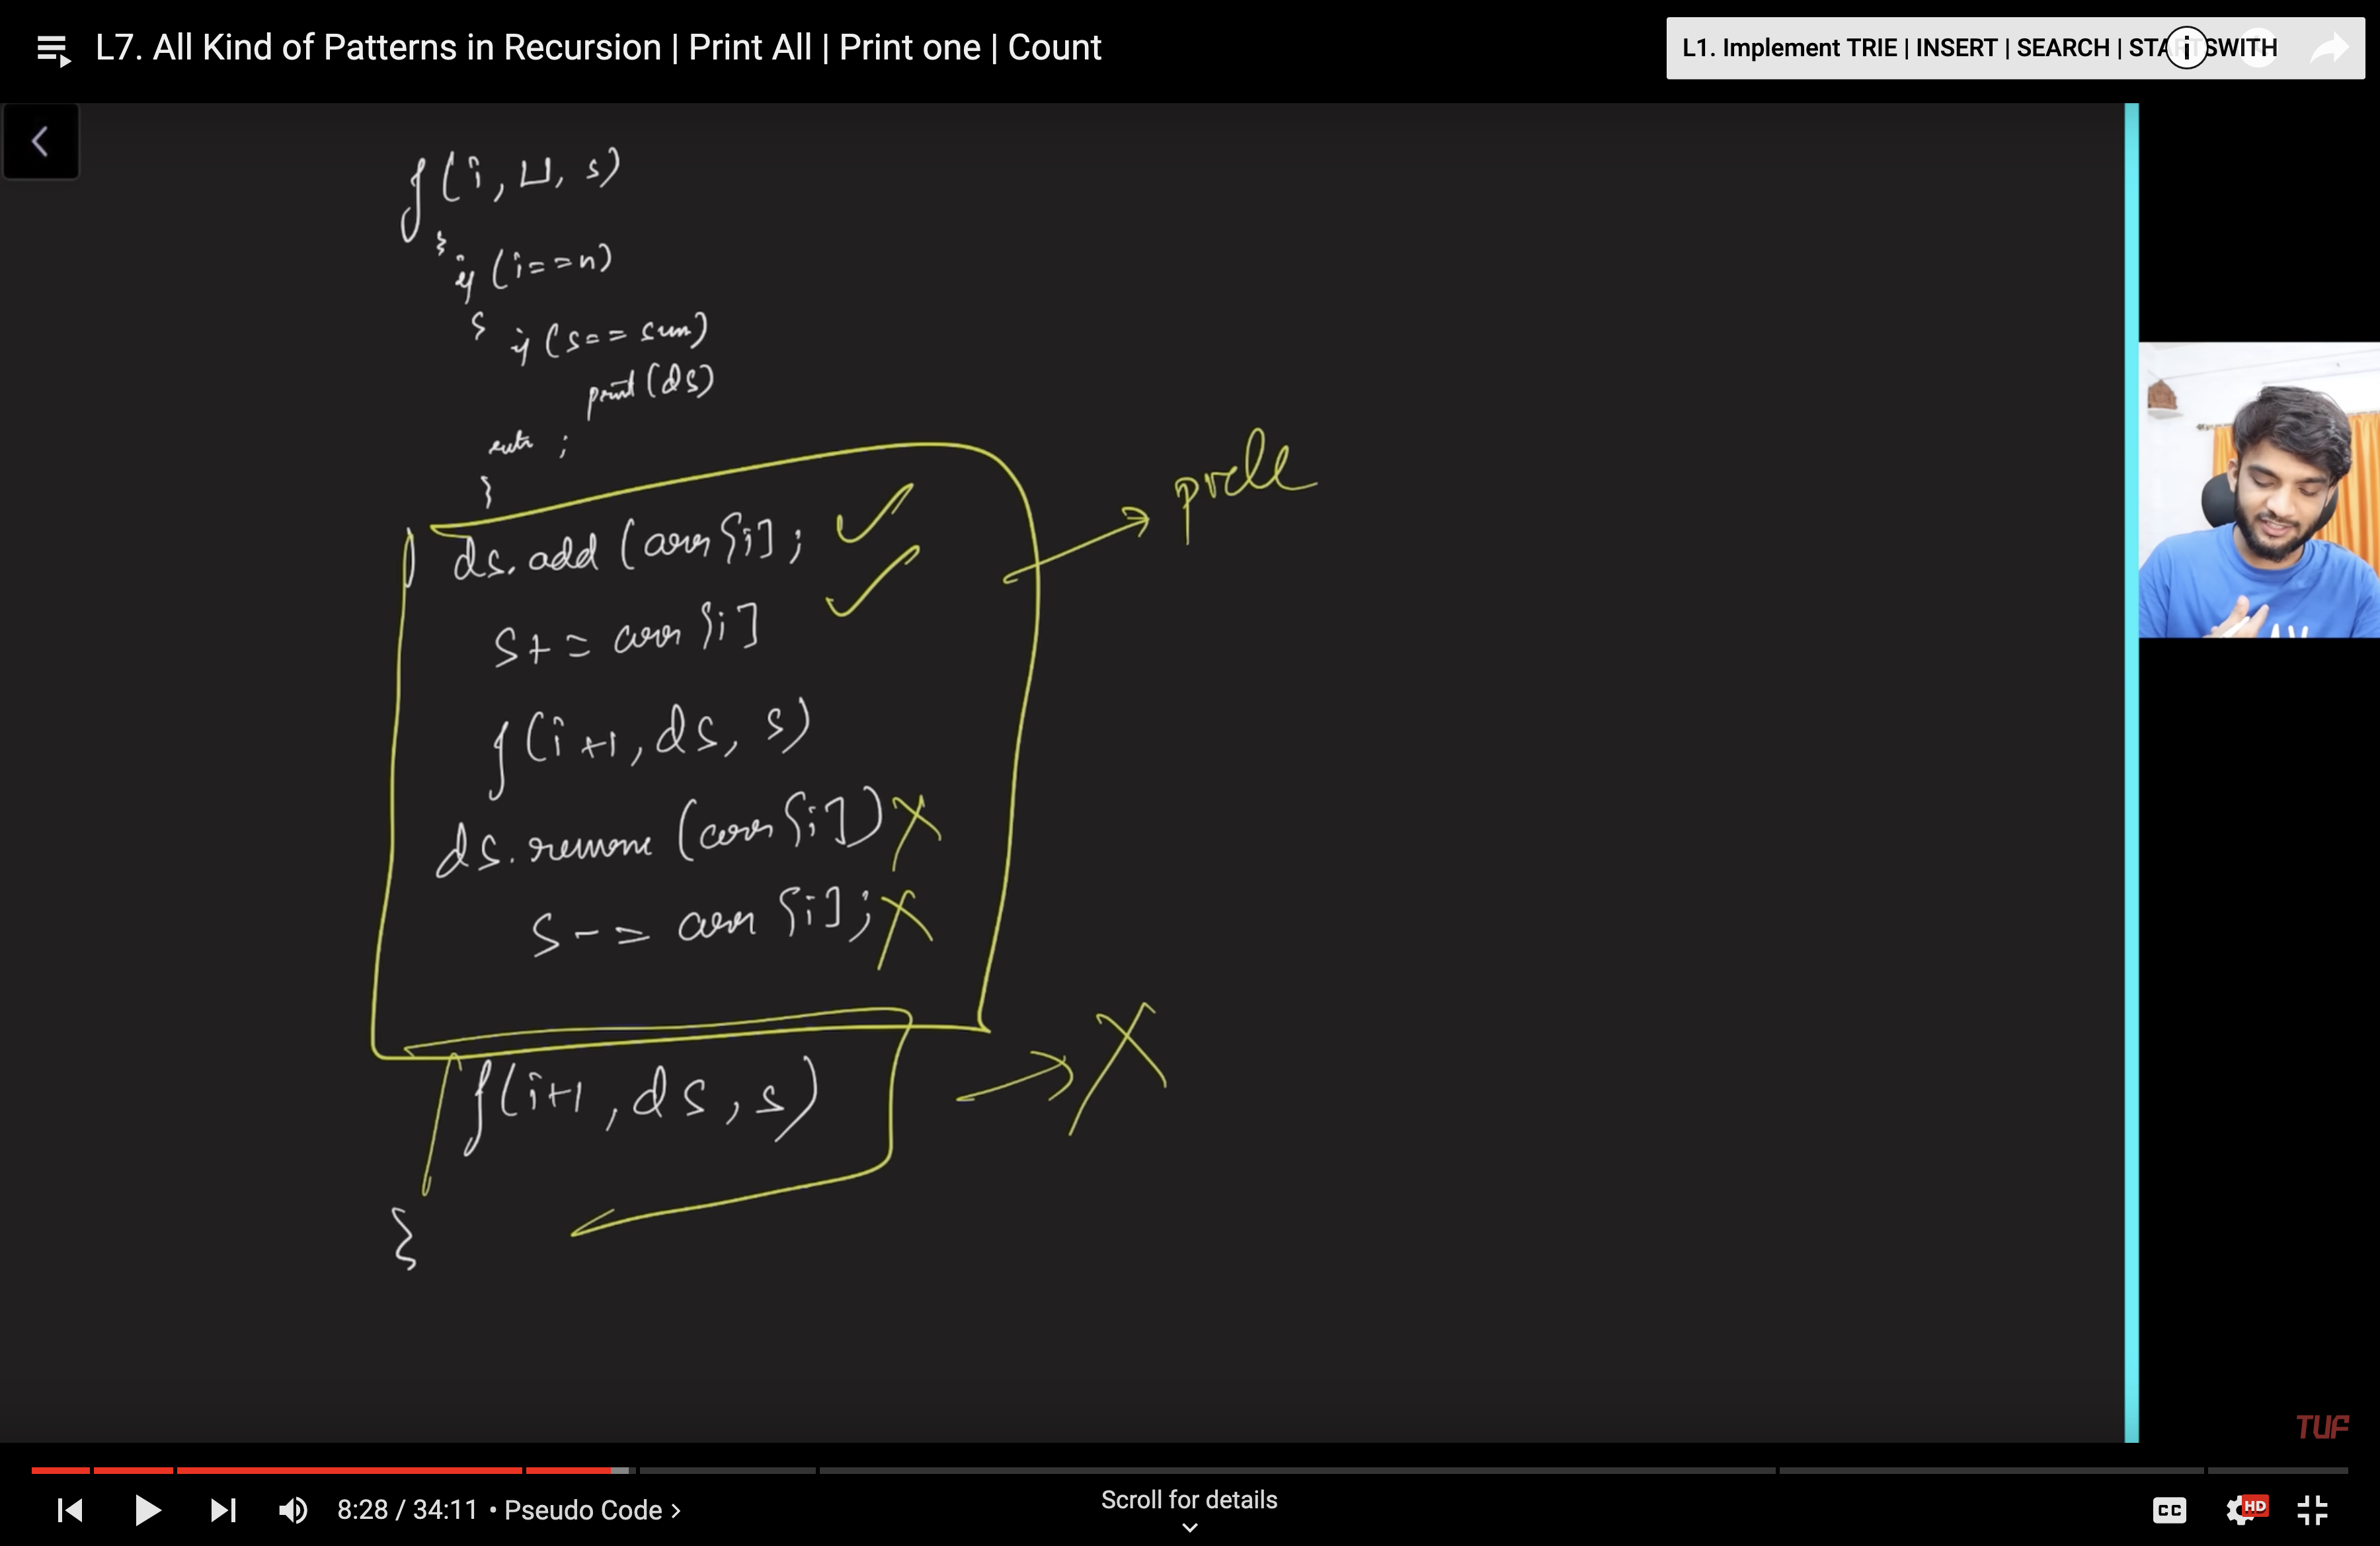 L7. All Kind of Patterns in Recursion | Print All | Print one | Count
L1. Implement TRIE | INSERT | SEARCH | STARTSWITH
f(i, [], s)
{
if (i==n)
{ if (s== sum)
print(ds)
;
}
ds.add(arr[i];
s+= arr[i]
f(i+1, ds, s)
ds.remove(arr[i])
s-= arr[i];
f(i+1, ds, s)
}
X
TUF
8:28 / 34:11 • Pseudo Code >
Scroll for details
CC
HD